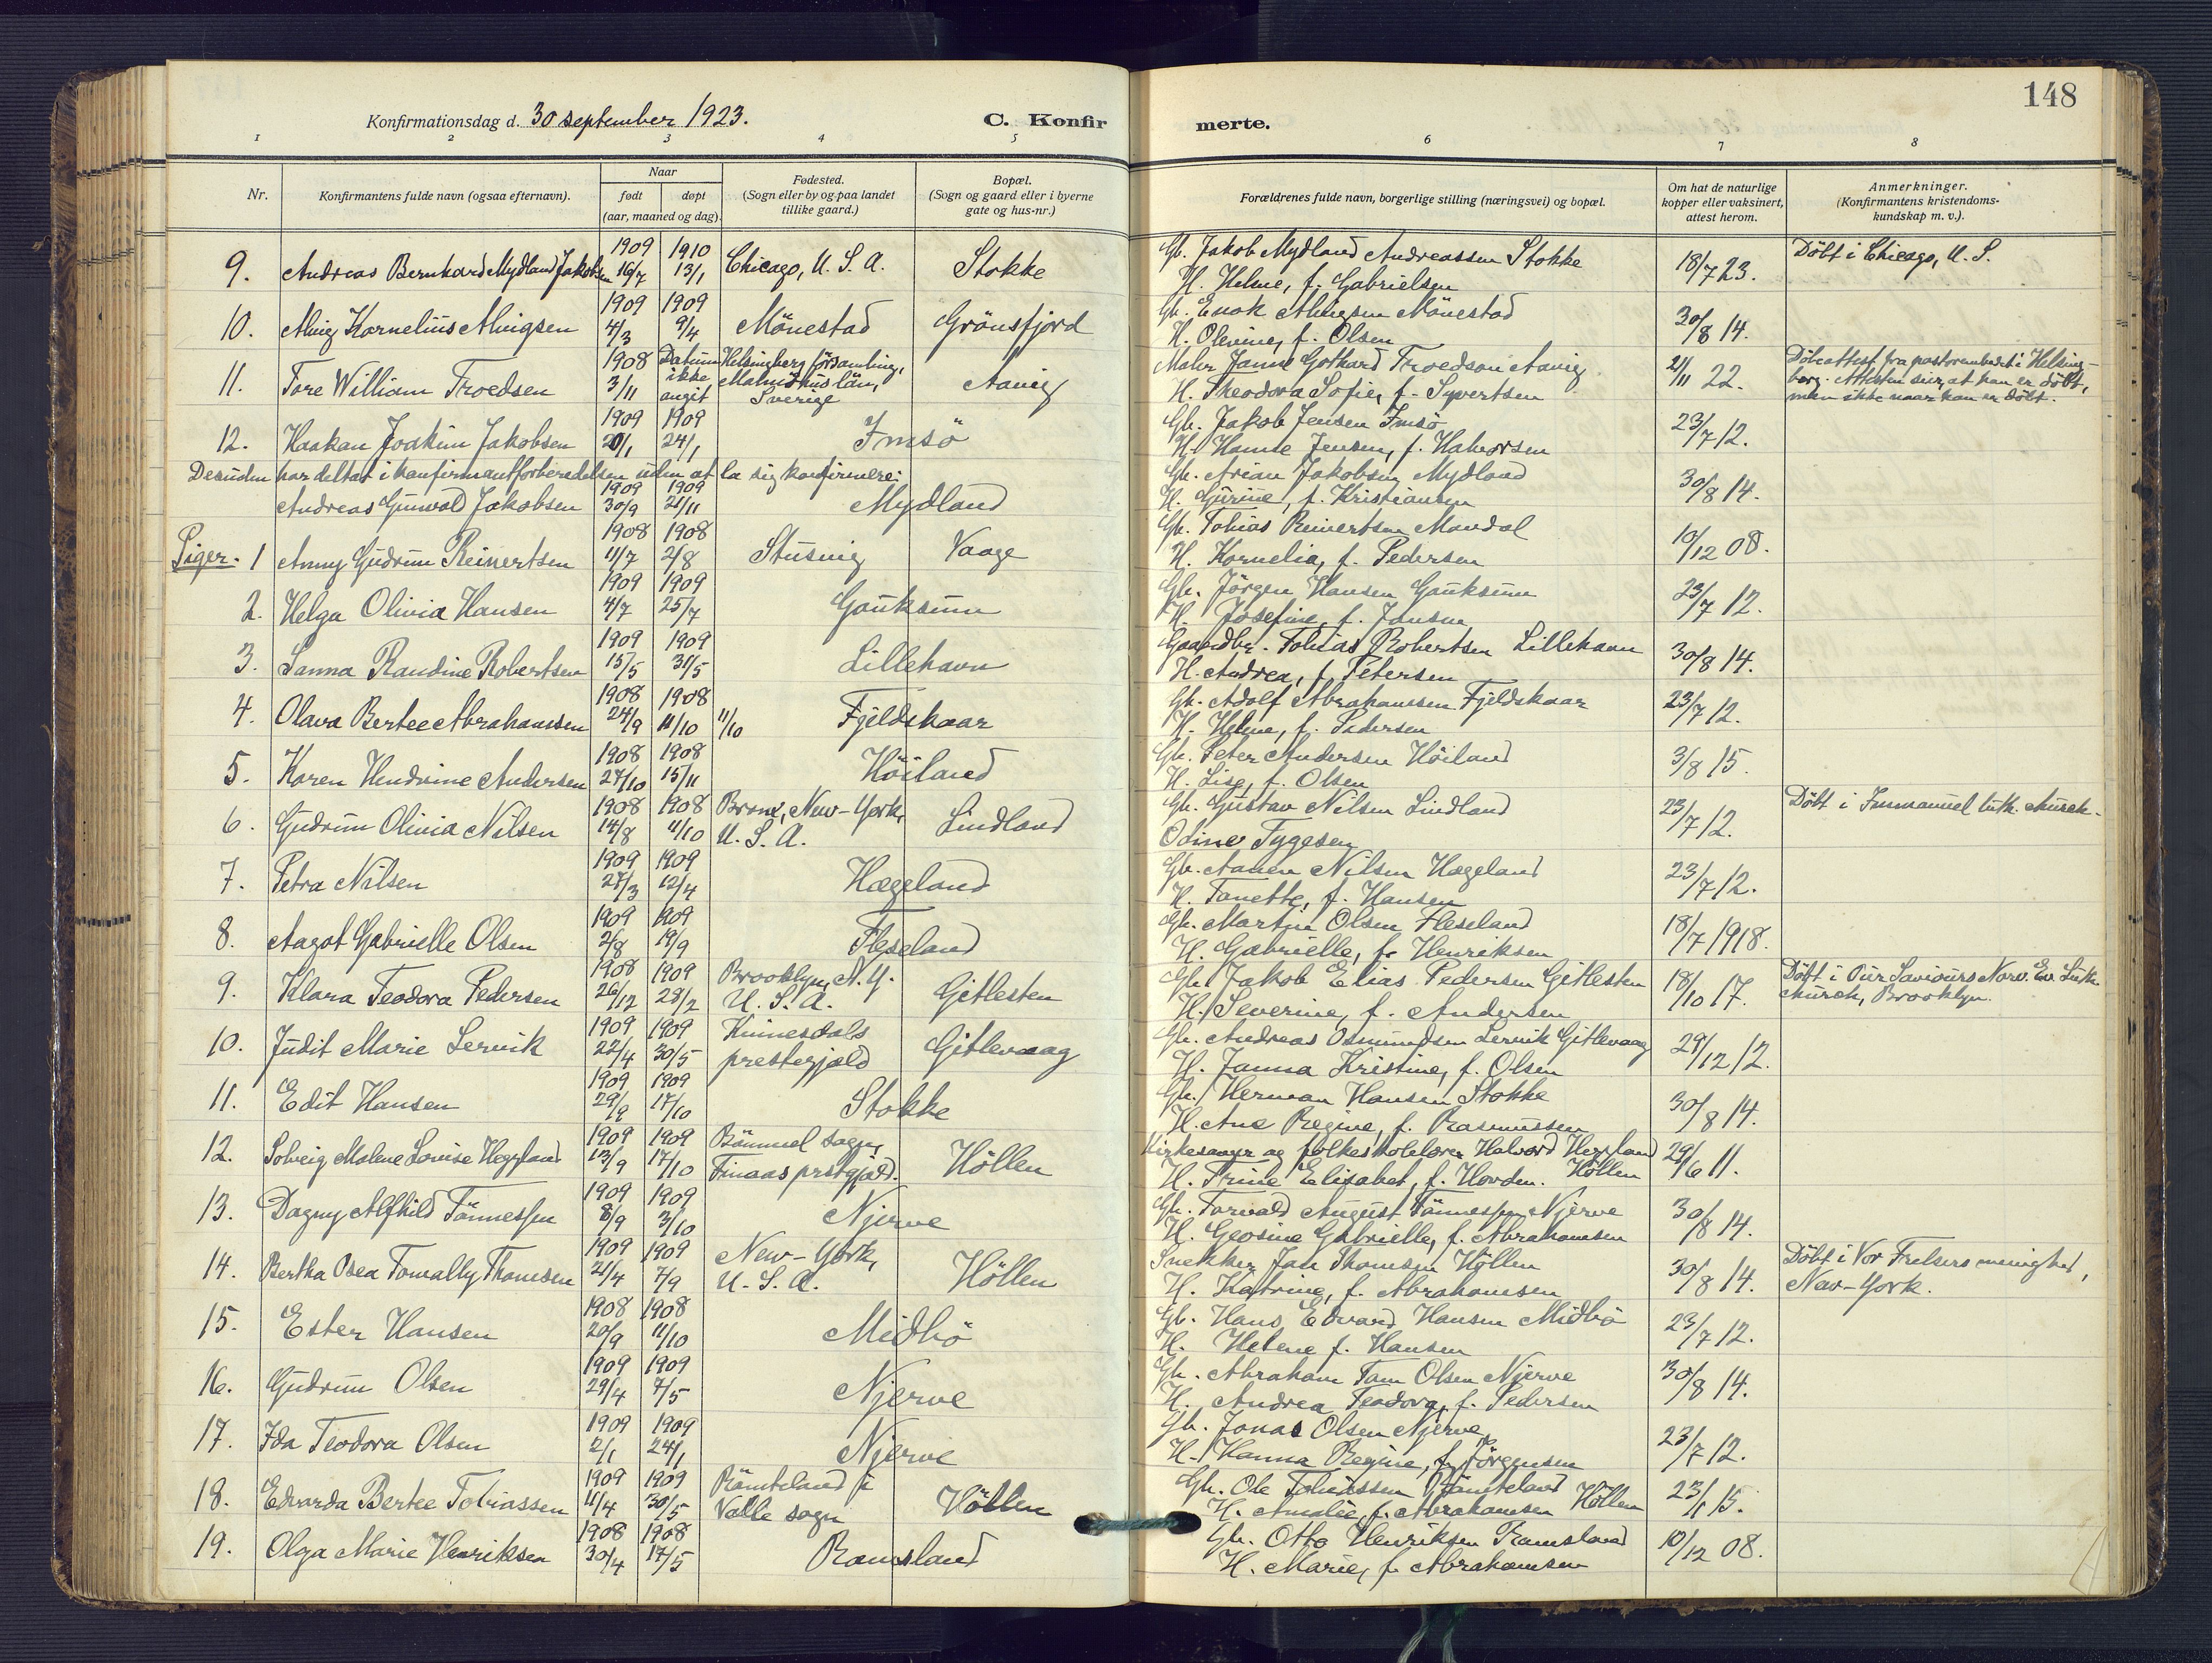 148
Konfirmationsdag d. 30 september 1923.
C. Konfir merte.
1 2 3 4 5 6 7 8
Nr.
Konfirmantens fulde navn (ogsaa efternavn).
Naar
født døpt
(aar, maaned og dag).
Fødested.
(Sogn eller by og paa landet
tillike gaard.)
Bopæl.
(Sogn og gaard eller i byerne
gate og hus-nr.)
Forældrenes fulde navn, borgerlige stilling (næringsvei) og bopæl.
Om hat de naturlige
kopper eller vaksinert,
attest herom.
Anmerkninger.
(Konfirmantens kristendoms-
kundskap m. v.).
9. Andreas Bernhard Mydland Jakobsen 1909 16/7 1910 13/1 Chicago, U. S. A. Stokke
Gb. Jakob Mydland Andreassen Stokke
H. Helene, f. Gabrielsen
18/7 23. Döbt i Chicago, U. S.
10. Alvig Kornelius Alvigsen 1909 4/3 1909 9/4 Mönestad Grönsfjord
Gb. Enok Alvigsen Mönestad
H. Olevine, f. Olsen
30/8 14.
11. Tore William Troedsen 1908 3/11 Datum ikke angit Helsingborg församling, Malmöhus län, Sverige Aavig
Maler Janne Gothard Troedson Aavig
H. Theodora Sofie, f. Syvertsen
2/11 22. Döbeattest fra pastorembedet i Helsing-
borg. Attesten sier, at han er döbt,
men ikke naar han er döbt.
12. Haakon Joakim Jakobsen 1909 20/1 1909 24/1 Imsö
Gb. Jakob Jensen Imsö
H. Hanne Jensen, f. Halvorsen
23/7 12.
Desuden har deltat i konfirmantforberedelsen uten at la sig konfirmere:
Andreas Gunvald Jakobsen 1909 30/9 1909 21/11 Mydland
Gb. Arian Jakobsen Mydland
H. Gurine, f. Kristiansen
30/8 14.
Piger. 1 Anny Gudrun Reinertsen 1908 11/7 1908 2/8 Stusvig Vaage
Gb. Tobias Reinertsen Mandal
H. Kornelia, f. Pedersen
10/12 08.
2. Helga Olivia Hansen 1909 4/7 1909 25/7 Gauksum
Gb. Jörgen Hansen Gauksum
H. Josefine, f. Jansen
23/7 12.
3. Sanna Randine Robertsen 1909 15/5 1909 31/5 Lillehavn
Gaardbr. Tobias Robertsen Lillehavn
H. Andrea, f. Petersen
30/8 14.
4. Olava Bertee Abrahamsen 1908 24/9 1908 11/10 11/10 Fjeldskaar
Gb. Adolf Abrahamsen Fjeldskaar
H. Helene, f. Pedersen
23/7 12.
5. Karen Hendrine Andersen 1908 27/10 1908 15/11 Höiland
Gb. Peter Andersen Höiland
H. Lise, f. Olsen
3/8 15.
6. Gudrun Olivia Nilsen 1908 14/8 1908 11/10 Bronx, New-York, U. S. A. Lindland
Gb. Gustav Nilsen Lindland
Odine Tygesen
23/7 12. Döbt i Immanuel luth. church.
7. Petra Nilsen 1909 27/3 1909 12/4 Hægeland
Gb. Aanen Nilsen Hægeland
H. Tanette, f. Hansen
23/7 12.
8. Aagot Gabrielle Olsen 1909 2/8 1909 19/9 Fleseland
Gb. Martin Olsen Fleseland
H. Gabrielle, f. Henriksen
18/7 1918.
9. Klara Teodora Pedersen 1908 26/12 1909 28/2 Brooklyn, N. Y. U. S. A. Gitlesten
Gb. Jakob Elias Pedersen Gitlesten
H. Severine, f. Andersen
18/10 17. Döbt i Our Saviours Norw. Ev. Luth.
church, Brooklyn.
10. Judit Marie Lervik 1909 22/4 1909 30/5 Kvinesdals prestegjæld Gitlevaag
Gb. Andreas Osmundsen Lervik Gitlevaag
H. Janna Kristine, f. Olsen
29/12 12.
11. Edit Hansen 1909 29/9 1909 17/10 Stokke
Gb. Herman Hansen Stokke
H. Ane Regine, f. Rasmussen
30/8 14.
12. Solveig Malene Lovise Heggland 1909 13/9 1909 17/10 Römmel sogn, Finaas prstgjæld. Höllen
Kirkesanger og folkeskolelærer Halvord Heggland
H. Trine Elisabet, f. Hovden. Höllen
29/6 11.
13. Dagny Alfhild Tönnessen 1909 8/9 1909 3/10 Njerve
Gb. Torvald August Tönnessen Njerve
H. Geosine Gabrielle, f. Abrahamsen
30/8 14.
14. Bertha Osea Tomally Thomsen 1909 21/4 1909 7/9 New-York, U. S. A. Höllen
Snekker Jah Thomsen Höllen
H. Katrine, f. Abrahamsen
30/8 14. Döbt i Vor Frelsers menighet,
New-York.
15. Ester Hansen 1908 20/9 1908 11/10 Midbö
Gb. Hans Edvard Hansen Midbö
H. Helene f. Hansen
23/7 12.
16. Gudrun Olsen 1909 29/4 1909 7/5 Njerve
Gb. Abraham Tom Olsen Njerve
H. Andrea Teodora, f. Pedersen
30/8 14.
17. Ida Teodora Olsen 1909 2/1 1909 24/1 Njerve
Gb. Jonas Olsen Njerve
H. Hanna Regine, f. Jörgensen
23/7 12.
18. Edvarda Bertee Tobiassen 1909 11/4 1909 30/5 Römteland i Valle sogn Höllen
Gb. Ole Tobiassen Römteland Höllen
H. Amalie, f. Abrahamsen
23/1 15.
19. Olga Marie Henriksen 1908 30/4 1908 17/5 Ramsland
Gb. Otto Henriksen Ramsland
H. Marie, f. Abrahamsen
10/12 08.